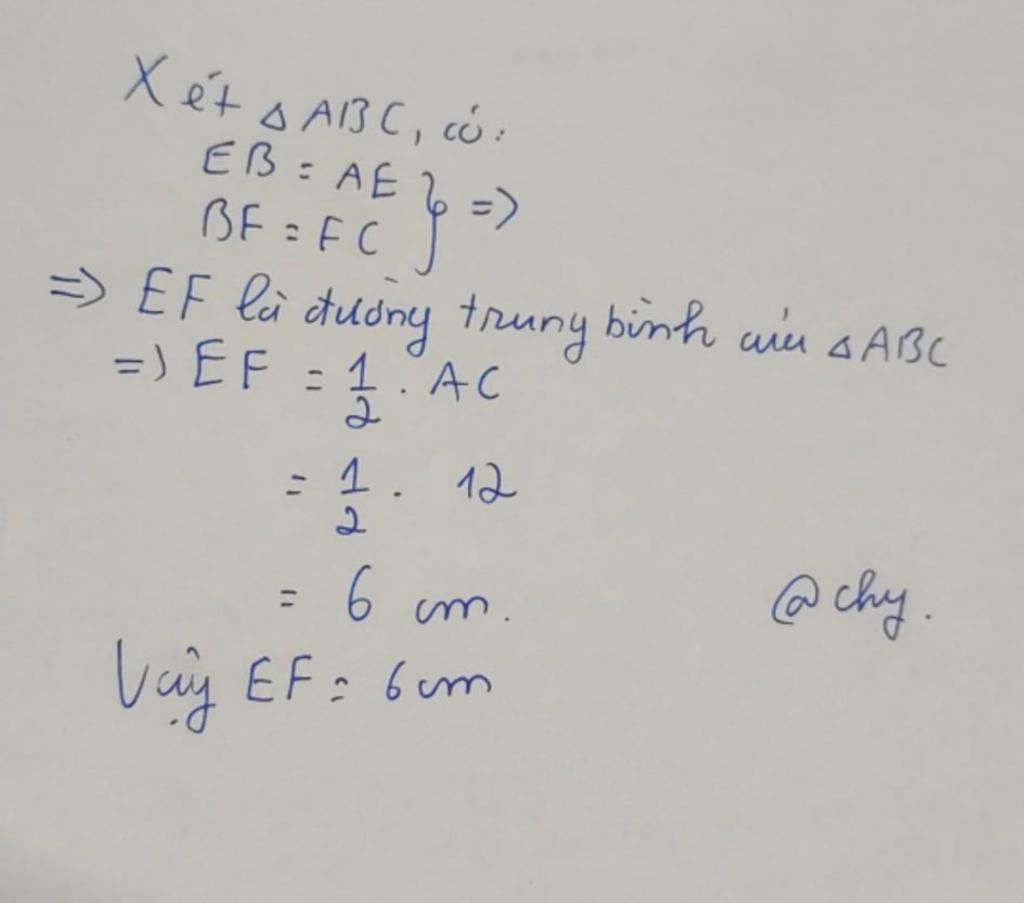 Xét △ABC, có:
EB = AE
BF = FC } =>
=> EF là đường trung bình của △ABC
=> EF = 1/2 . AC
= 1/2 . 12
= 6 cm.
@chy.
Vậy EF = 6cm